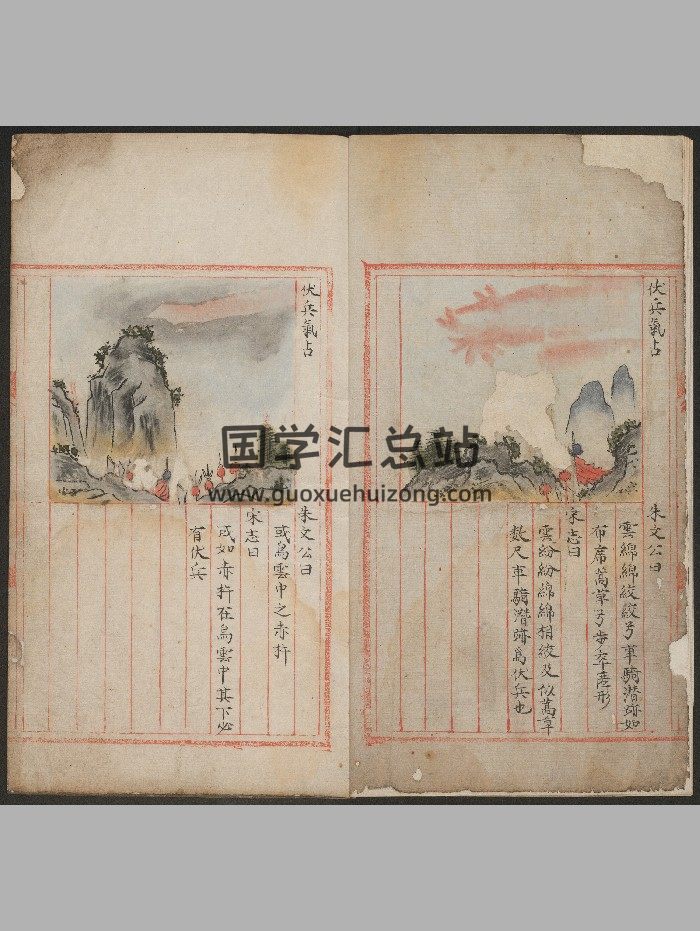 伏兵氣占
朱文公曰
雲綿綿絞絞兮車騎潛跡如
布席萬草兮步卒形
宋志曰
雲紛紛綿綿相絞及似萬草
數尺車騎潛跡為伏兵也
伏兵氣占
朱文公曰
或烏雲中之赤杵
宋志曰
或如赤杵在烏雲中其下必
有伏兵
国学汇总站
www.guoxuehuizong.com